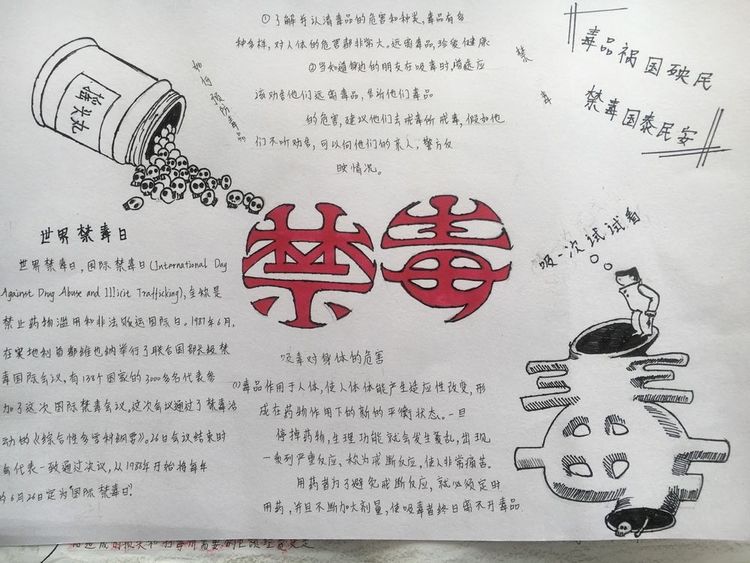 摇头丸
如何预防毒品
①了解并认清毒品的危害和种类,毒品有多
种多样,对人体的危害都非常大。远离毒品,珍爱健康
②当知道身边的朋友在吸毒时,请应
该劝告他们远离毒品,告诉他们毒品
的危害,建议他们去戒毒所戒毒,假如他
们不听劝告,可以向他们的亲人,警方反
映情况。
禁
毒
毒品祸国殃民
禁毒国泰民安
禁毒
世界禁毒日
世界禁毒日,国际禁毒日(International Day
Against Drug Abuse and Illicit Trafficking),全称是
禁止药物滥用和非法贩运国际日。1987年6月,
在奥地利首都维也纳举行了联合国部长级禁
毒国际会议,有138个国家的3000多名代表参
加了这次国际禁毒会议,这次会议通过了禁毒活
动的《综合性多学科纲要》。26日会议结束时
与代表一致通过决议,从1988年开始将每年
的6月26日定为"国际禁毒日"。
吸一次试试看
吸毒对身体的危害
①毒品作用于人体,使人体体能产生适应性改变,形
成在药物作用下的新的平衡状态。一旦
停掉药物,生理功能就会发生紊乱,出现
一系列严重反应、称为戒断反应,使人非常痛苦。
用药者为了避免戒断反应,就必须定时
用药,并且不断加大剂量,使吸毒者终日离不开毒品